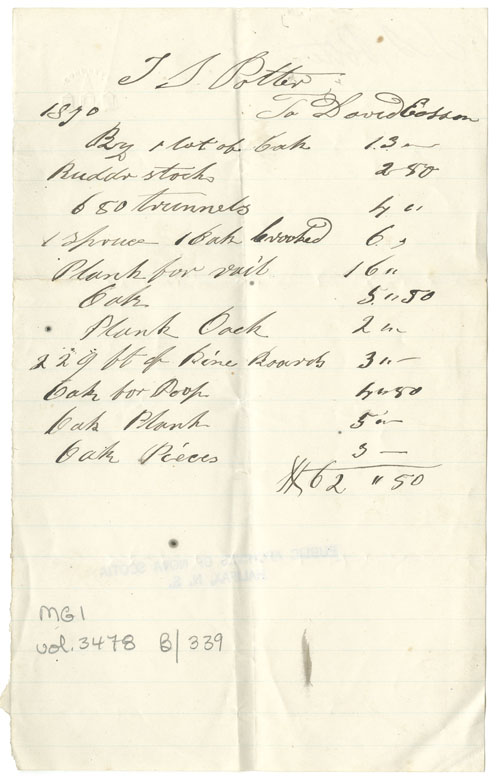 T S Potter
1870 To David Cossan
By 1 lot of Oak 13 "–
Ruddr stocks 2 50
680 trunnels 4 "
1 Spruce 1 Oak Crooked 6 "
Plank for rail 16 "
Oak 5 " 50
Plank Oack 2 "–
229 ft of Pine Boards 3 "–
Oak for Poop 4 " 50
Oak Plank 5 "–
Oak Pieces 3 –
$62 " 50
PUBLIC ARCHIVES OF NOVA SCOTIA
HALIFAX, N. S.
MG1
vol. 3478 B/339